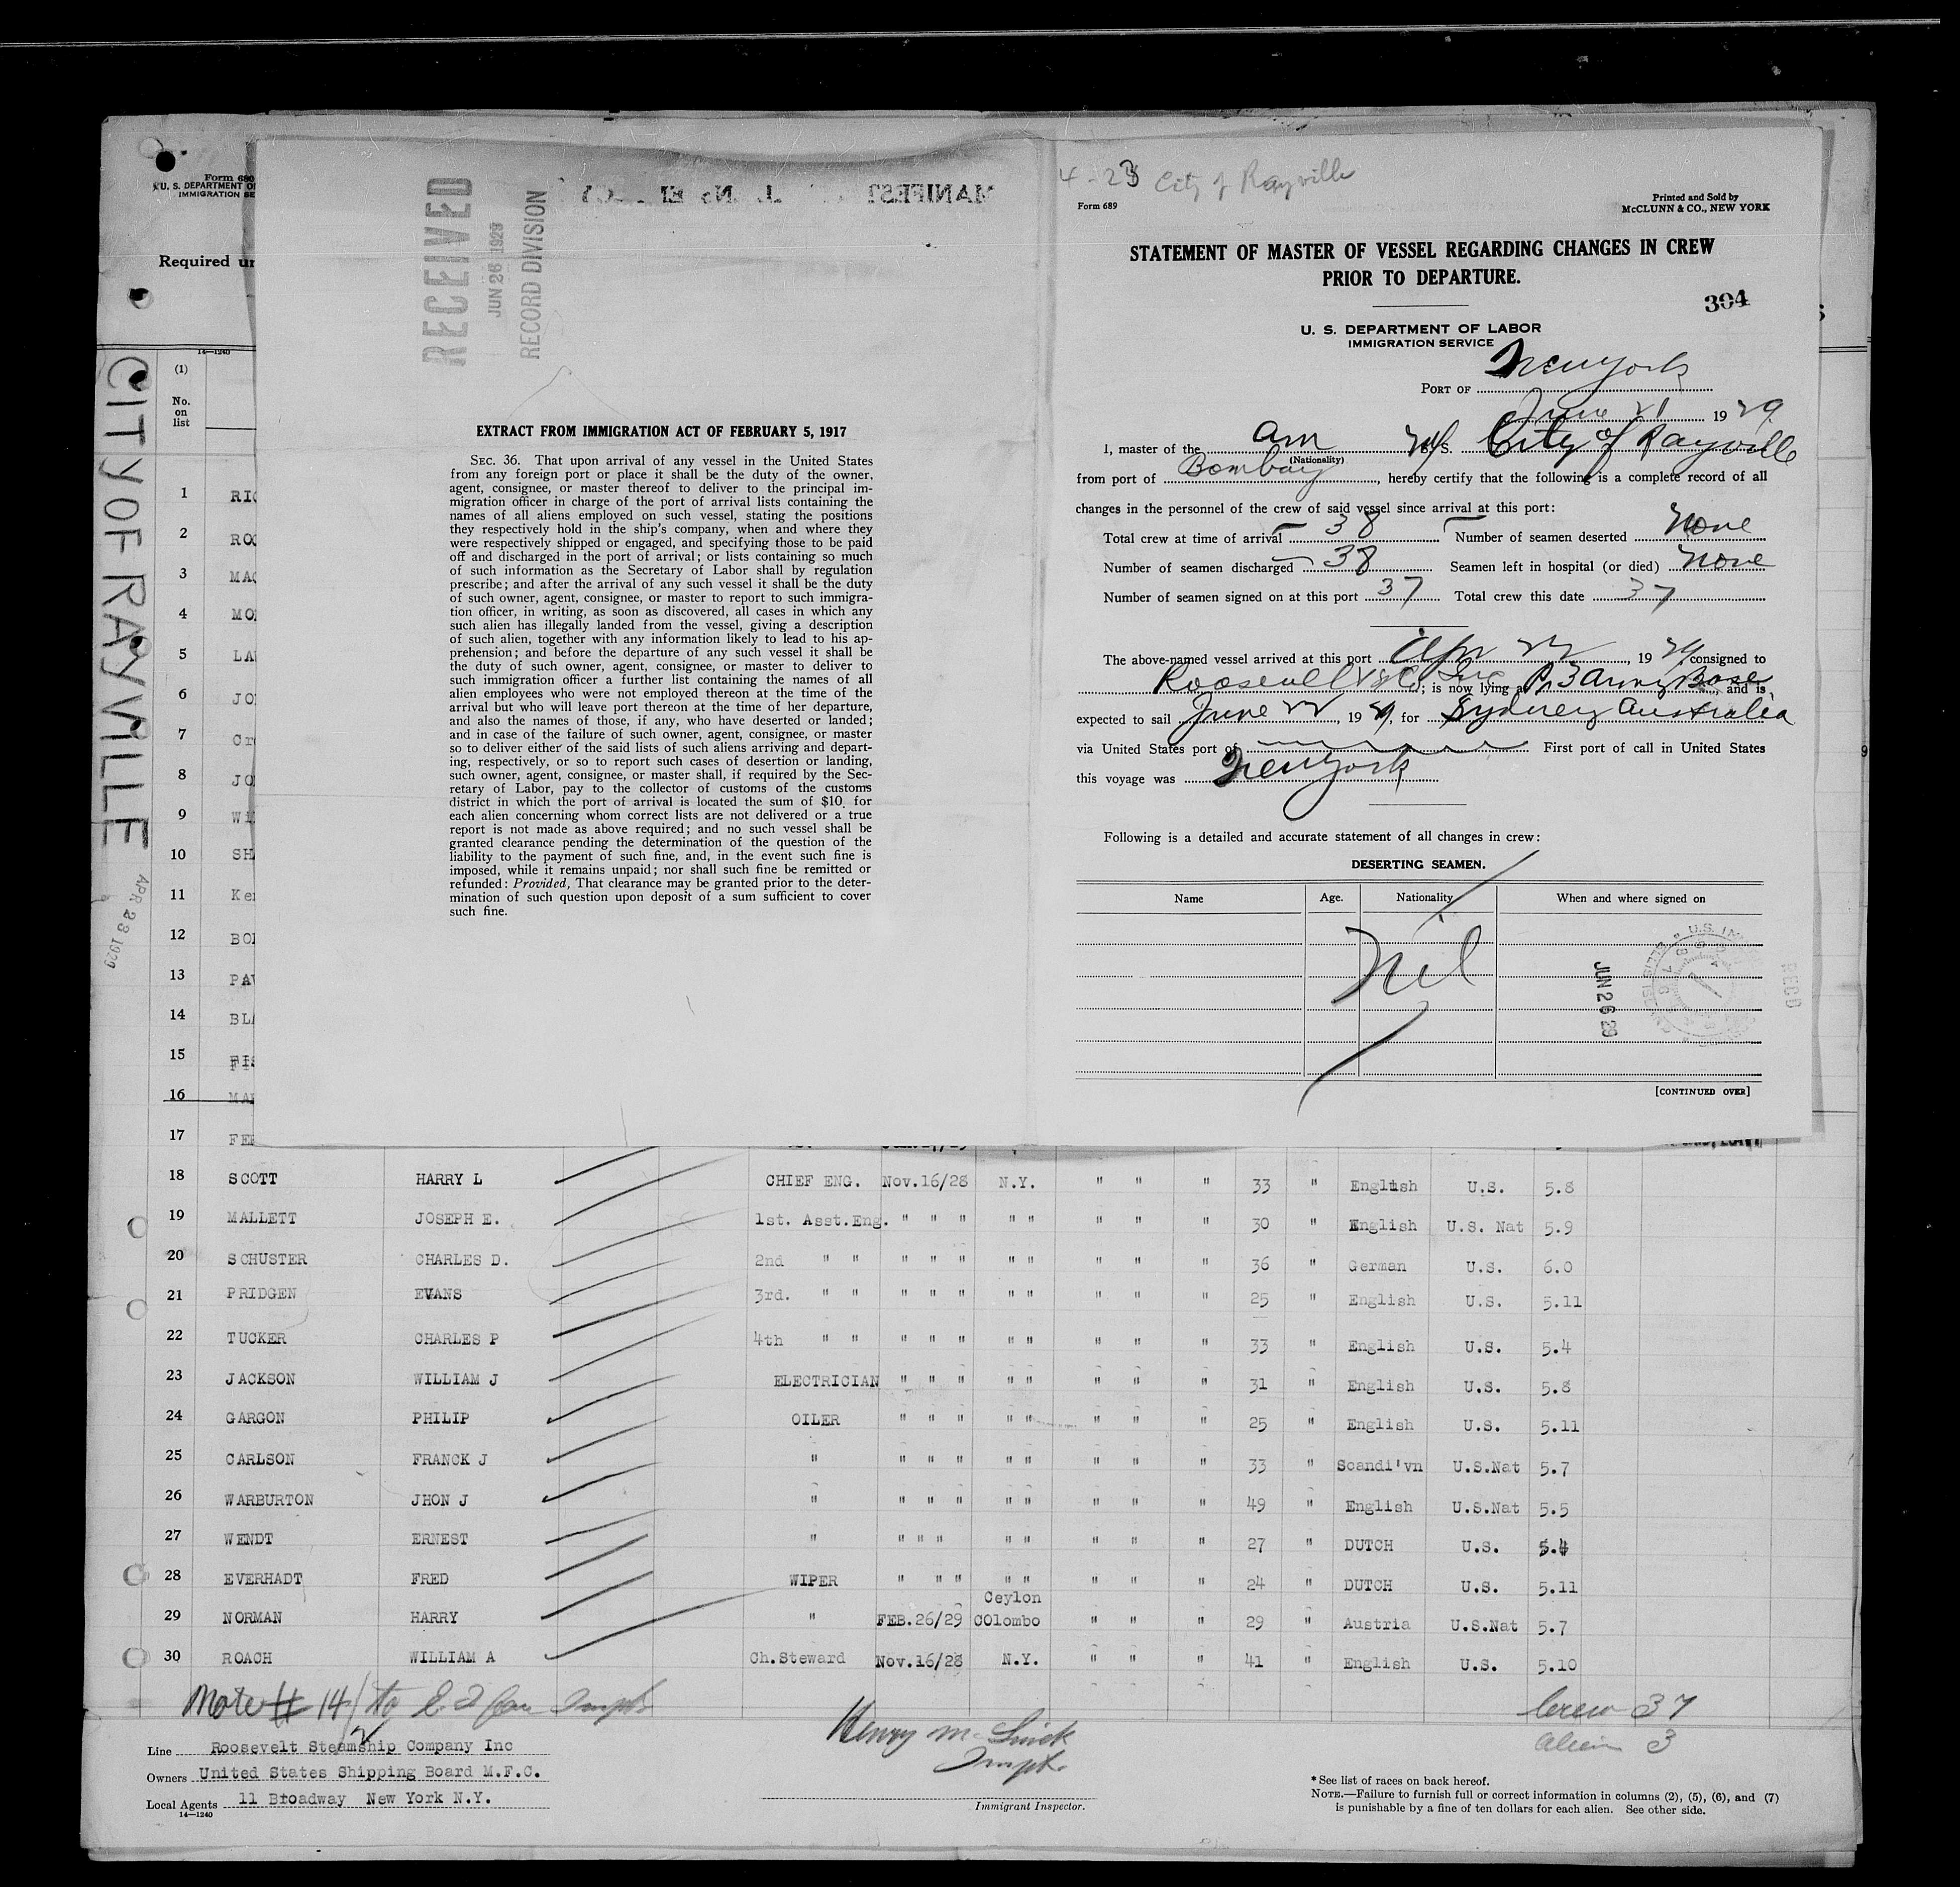 Form 680
U. S. DEPARTMENT O
IMMIGRATION SE
Required un
14—1240
(1)
No.
on
list
CITY OF RAYVILLE
APR 23 1929
1 RI
2 RO
3 MA
4 MO
5 LA
6 JO
7 Cr
8 JO
9 Wi
10 SH
11 Ke
12 BO
13 PA
14 BL
15 FI
16 MA
17 FE
MANIFEST
RECEIVED
JUN 26 1929
RECORD DIVISION
EXTRACT FROM IMMIGRATION ACT OF FEBRUARY 5, 1917
SEC. 36. That upon arrival of any vessel in the United States
from any foreign port or place it shall be the duty of the owner,
agent, consignee, or master thereof to deliver to the principal im-
migration officer in charge of the port of arrival lists containing the
names of all aliens employed on such vessel, stating the positions
they respectively hold in the ship's company, when and where they
were respectively shipped or engaged, and specifying those to be paid
off and discharged in the port of arrival; or lists containing so much
of such information as the Secretary of Labor shall by regulation
prescribe; and after the arrival of any such vessel it shall be the duty
of such owner, agent, consignee, or master to report to such immigra-
tion officer, in writing, as soon as discovered, all cases in which any
such alien has illegally landed from the vessel, giving a description
of such alien, together with any information likely to lead to his ap-
prehension; and before the departure of any such vessel it shall be
the duty of such owner, agent, consignee, or master to deliver to
such immigration officer a further list containing the names of all
alien employees who were not employed thereon at the time of the
arrival but who will leave port thereon at the time of her departure,
and also the names of those, if any, who have deserted or landed;
and in case of the failure of such owner, agent, consignee, or master
so to deliver either of the said lists of such aliens arriving and depart-
ing, respectively, or so to report such cases of desertion or landing,
such owner, agent, consignee, or master shall, if required by the Sec-
retary of Labor, pay to the collector of customs of the customs
district in which the port of arrival is located the sum of $10 for
each alien concerning whom correct lists are not delivered or a true
report is not made as above required; and no such vessel shall be
granted clearance pending the determination of the question of the
liability to the payment of such fine, and, in the event such fine is
imposed, while it remains unpaid; nor shall such fine be remitted or
refunded: Provided, That clearance may be granted prior to the deter-
mination of such question upon deposit of a sum sufficient to cover
such fine.
4-23 City of Rayville
Form 689
Printed and Sold by
McCLUNN & CO., NEW YORK
STATEMENT OF MASTER OF VESSEL REGARDING CHANGES IN CREW
PRIOR TO DEPARTURE.
304
U. S. DEPARTMENT OF LABOR
IMMIGRATION SERVICE
PORT OF New York
June 21 1929
I, master of the Am M/S. City of Rayville
(Nationality)
from port of Bombay, hereby certify that the following is a complete record of all
changes in the personnel of the crew of said vessel since arrival at this port:
Total crew at time of arrival 38 Number of seamen deserted None
Number of seamen discharged 38 Seamen left in hospital (or died) None
Number of seamen signed on at this port 37 Total crew this date 37
The above-named vessel arrived at this port Apr 22, 1929, consigned to
Roosevelt SS Co Inc; is now lying at Pr 3 Army Base, and is
expected to sail June 22, 1929, for Sydney Australia
via United States port of First port of call in United States
this voyage was New York
Following is a detailed and accurate statement of all changes in crew:
DESERTING SEAMEN.
Name Age. Nationality When and where signed on
Nil
JUN 26 29
RECD
[CONTINUED OVER]
18 SCOTT HARRY L CHIEF ENG. Nov.16/28 N.Y. " " " 33 " English U.S. 5.8
19 MALLETT JOSEPH E. 1st. Asst.Eng. " " " " " " " " 30 " English U.S. Nat 5.9
20 SCHUSTER CHARLES D. 2nd " " " " " " " " " " 36 " German U.S. 6.0
21 PRIDGEN EVANS 3rd. " " " " " " " " " " 25 " English U.S. 5.11
22 TUCKER CHARLES P 4th " " " " " " " " " " 33 " English U.S. 5.4
23 JACKSON WILLIAM J ELECTRICIAN " " " " " " " " 31 " English U.S. 5.8
24 GARGON PHILIP OILER " " " " " " " " 25 " English U.S. 5.11
25 CARLSON FRANCK J " " " " " " " " " 33 " Scandi'vn U.S.Nat 5.7
26 WARBURTON JHON J " " " " " " " " " 49 " English U.S.Nat 5.5
27 WENDT ERNEST " " " " " " " " " 27 " DUTCH U.S. 5.4
28 EVERHADT FRED WIPER " " " " " " " " 24 " DUTCH U.S. 5.11
Ceylon
29 NORMAN HARRY " FEB.26/29 COlombo " " " 29 " Austria U.S.Nat 5.7
30 ROACH WILLIAM A Ch.Steward Nov.16/28 N.Y. " " " 41 " English U.S. 5.10
Note # 14 to
Crew 37
Alien 3
Line Roosevelt Steamship Company Inc
Owners United States Shipping Board M.F.C.
Local Agents 11 Broadway New York N.Y.
14—1240
Henry
Immigrant Inspector.
* See list of races on back hereof.
NOTE.—Failure to furnish full or correct information in columns (2), (5), (6), and (7)
is punishable by a fine of ten dollars for each alien. See other side.